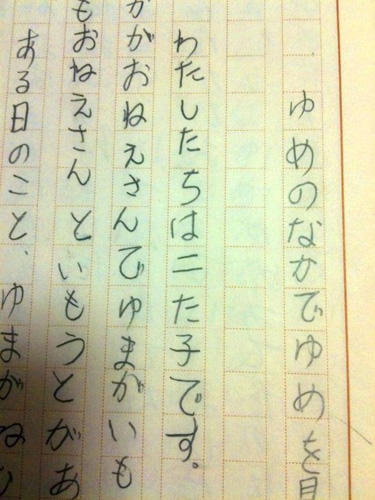 ゆめのなかでゆめを
わたしたちは二た子です。
かがおねえさんでゆまがいも
もおねえさんといもうとがあ
ある日のこと、ゆまがね